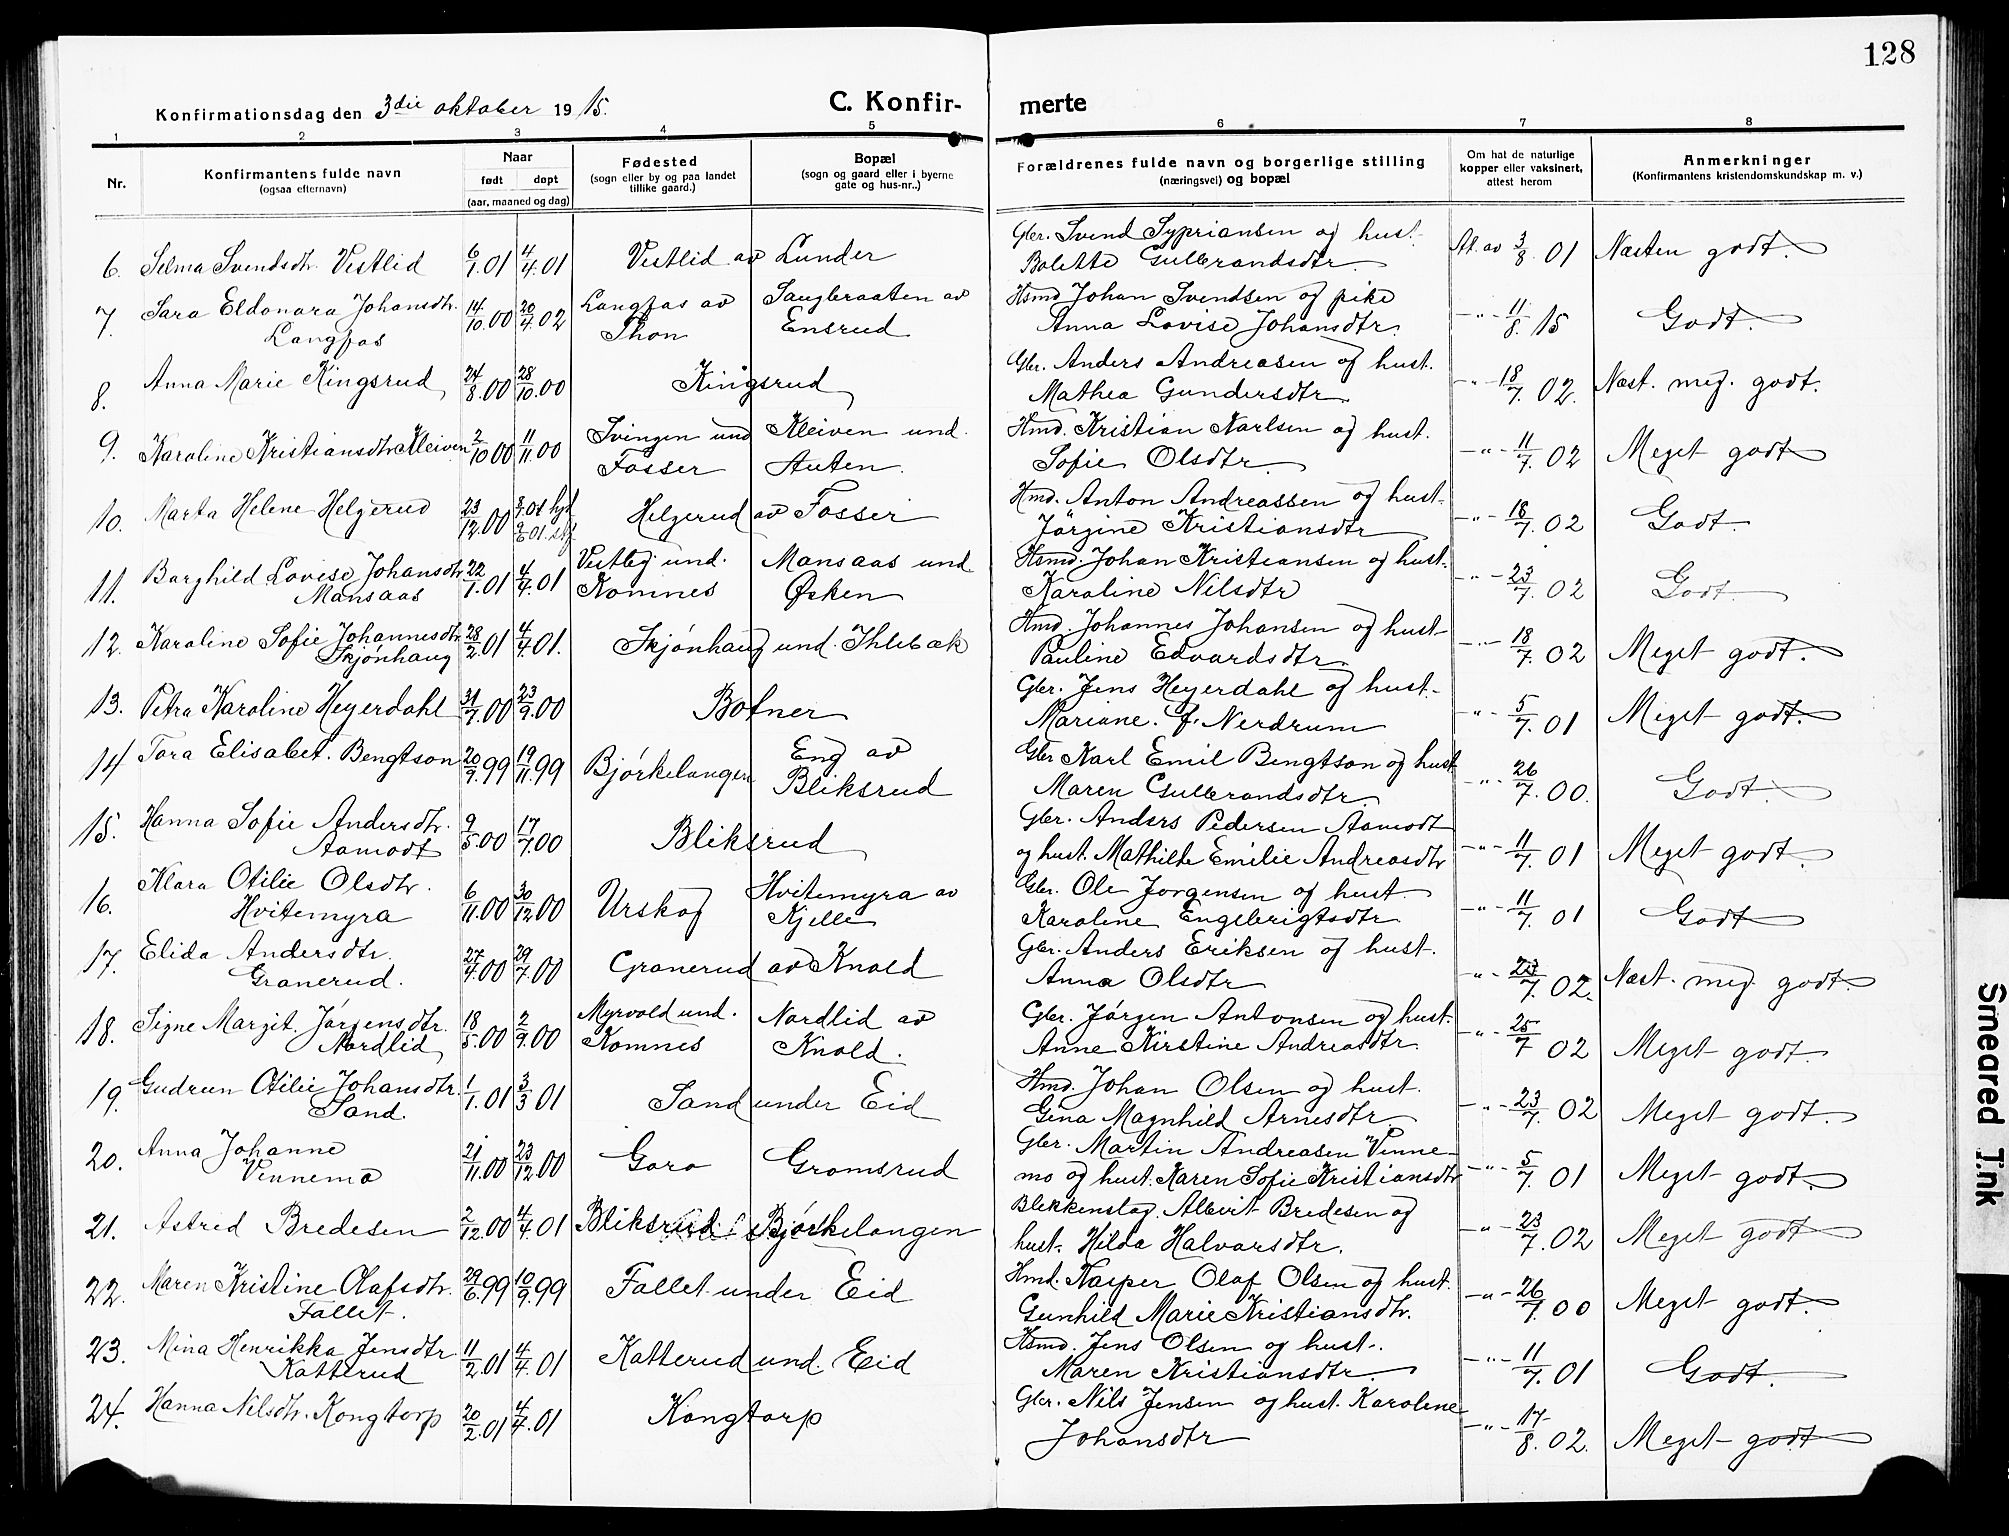 128
Konfirmationsdag den 3die oktober 1915.
C. Konfirmerte
1 2 3 4 5 6 7 8
Nr.
Konfirmantens fulde navn
(ogsaa efternavn)
Naar
født døpt
(aar, maaned og dag)
Fødested
(sogn eller by og paa landet
tillike gaard.)
Bopæl
(sogn og gaard eller i byerne
gate og hus-nr..)
Forældrenes fulde navn og borgerlige stilling
(næringsvei) og bopæl
Om hat de naturlige
kopper eller vaksinert,
attest herom
Anmerkninger
(Konfirmantens kristendomskundskap m. v.)
6. Selma Svendsdtr. Vestlid 6/1.01 4/4.01 Vestlid av Lunder
Gbr. Svend Sypriansen og hust.
Bolette Gulbrandsdtr. At. av 3/8 01 Næsten godt.
7. Sara Eldonora Johansdtr.
Langfas 14/10.00 20/4.02 Langfas av
Thon
Saugbraaten av
Ensrud
Hsmd Johan Svendsen og pike
Anna Lovise Johansdtr. -"- 11/8. 15 Godt.
8. Anna Marie Kingsrud 24/8.00 28/10.00 Kingsrud
Gbr. Anders Andreasen og hust.
Mathea Gundersdtr. -"- 18/7. 02. Næst. meg. godt.
9. Karoline Kristiansdtr. Kleiven 2/10 00 11/11.00 Svingen und
Fosser
Kleiven und.
Auten.
Hmd. Kristian Karlsen og hust.
Sofie Olsdtr. -"- 11/7. 02 Meget godt
10. Marta Helene Helgerud 23/12.00 Helgerud av Fosser
Hmd. Anton Andreassen og hust.
Jörgine Kristiansdtr -"- 18/7. 02 Godt
11. Borghild Lovise Johansdtr.
Mansaas 22/1.01 4/4.01 Vestby und.
Komnes
Mansaas und
Ørken
Hsmd. Johan Kristiansen og hust.
Karoline Nilsdtr -"- 23/7. 02 Godt
12. Karoline Sofie Johannesdtr.
Skjønhaug 28/2.01 4/4.01. Skjønhaug und. Ihlebæk
Hmd. Johannes Johansen og hust.
Pauline Edvardsdtr. -"- 18/7. 02 Meget godt.
13. Petra Karoline Heyerdahl 31/7.00 23/9.00 Botner
Gbr. Jens Heyerdahl og hust.
Mariane. f. Nerdrum -"- 5/7. 01 Meget godt.
14 Tora Elisabet. Bengtson 20/9.99 19/11.99 Bjørkelangen
Eng av
Bliksrud
Gbr Karl Emil Bengtson og hust
Maren Gulbrandsdtr. -"- 26/7. 00. Godt.
15. Hanna Sofie Andersdtr.
Aamodt 9/5.00 17/7.00 Bliksrud
Gbr. Anders Pedersen Aamodt
og hust. Mathilde Emilie Andreasdtr -"- 11/7. 01 Meget godt.
16. Klara Otilie Olsdtr.
Hvitemyra 6/11.00 30/12.00 Urskog
Hvitemyra av
Kjelle
Gbr. Ole Jorgensen og hust.
Karoline Engebrigtsdtr. -"- 11/7. 01 Godt
17. Elida Andersdtr.
Granerud. 27/4.00 29/7.00 Granerud av Knold
Gbr. Anders Eriksen og hust.
Anna Olsdtr -"- 23/7. 02. Næst. meg. godt.
18. Signe Margit. Jørgensdtr.
Nordlid 18/5.00 2/9.00 Myrvold und.
Komnes
Nordlid av
Knold.
Gbr. Jørgen Antonsen og hust.
Anne Kirstine Andreasdtr. -"- 25/7 02 Meget godt
19. Gudrun Otilie Johansdtr.
Sand. 1/1.01 3/3 01 Sand under Eid
Hmd. Johan Olsen og hust.
Gina Magnhild Arnesdtr. -"- 23/7. 02 Meget godt.
20. Anna Johanne
Vennemo 21/11.00 23/12.00 Gara Gromsrud
Gbr. Martin Andreasen Venne-
mo og hust. Karen Sofie Kristiansdtr -"- 5/7. 01 Meget godt.
21. Astrid Bredesen 2/12.00 4/4.01 Bliksrud Bjørkelangen
Blekkenslag. Albert Bredesen og
hust. Hilda Halvorsdtr. -"- 23/7. 02 Meget godt
22. Maren Kristine Olafsdtr.
Fallet. 29/6.99 10/9.99 Fallet under Eid
Hmd. Kasper Olaf Olsen og hust.
Gunhild Marie Kristiansdtr. -"- 26/7. 00 Meget godt.
23. Mina Henrikka Jensdtr.
Katterud 11/2.01 4/4.01 Katterud und. Eid
Hsmd. Jens Olsen og hust.
Maren Kristiansdtr. -"- 11/7. 01 Godt.
24. Hanna Nilsdtr. Kongtorp 20/2.01 4/4.01 Kongtorp
Gbr. Nils Jensen og hust. Karoline
Johansdtr -"- 17/8. 02. Meget godt
Smeared Ink